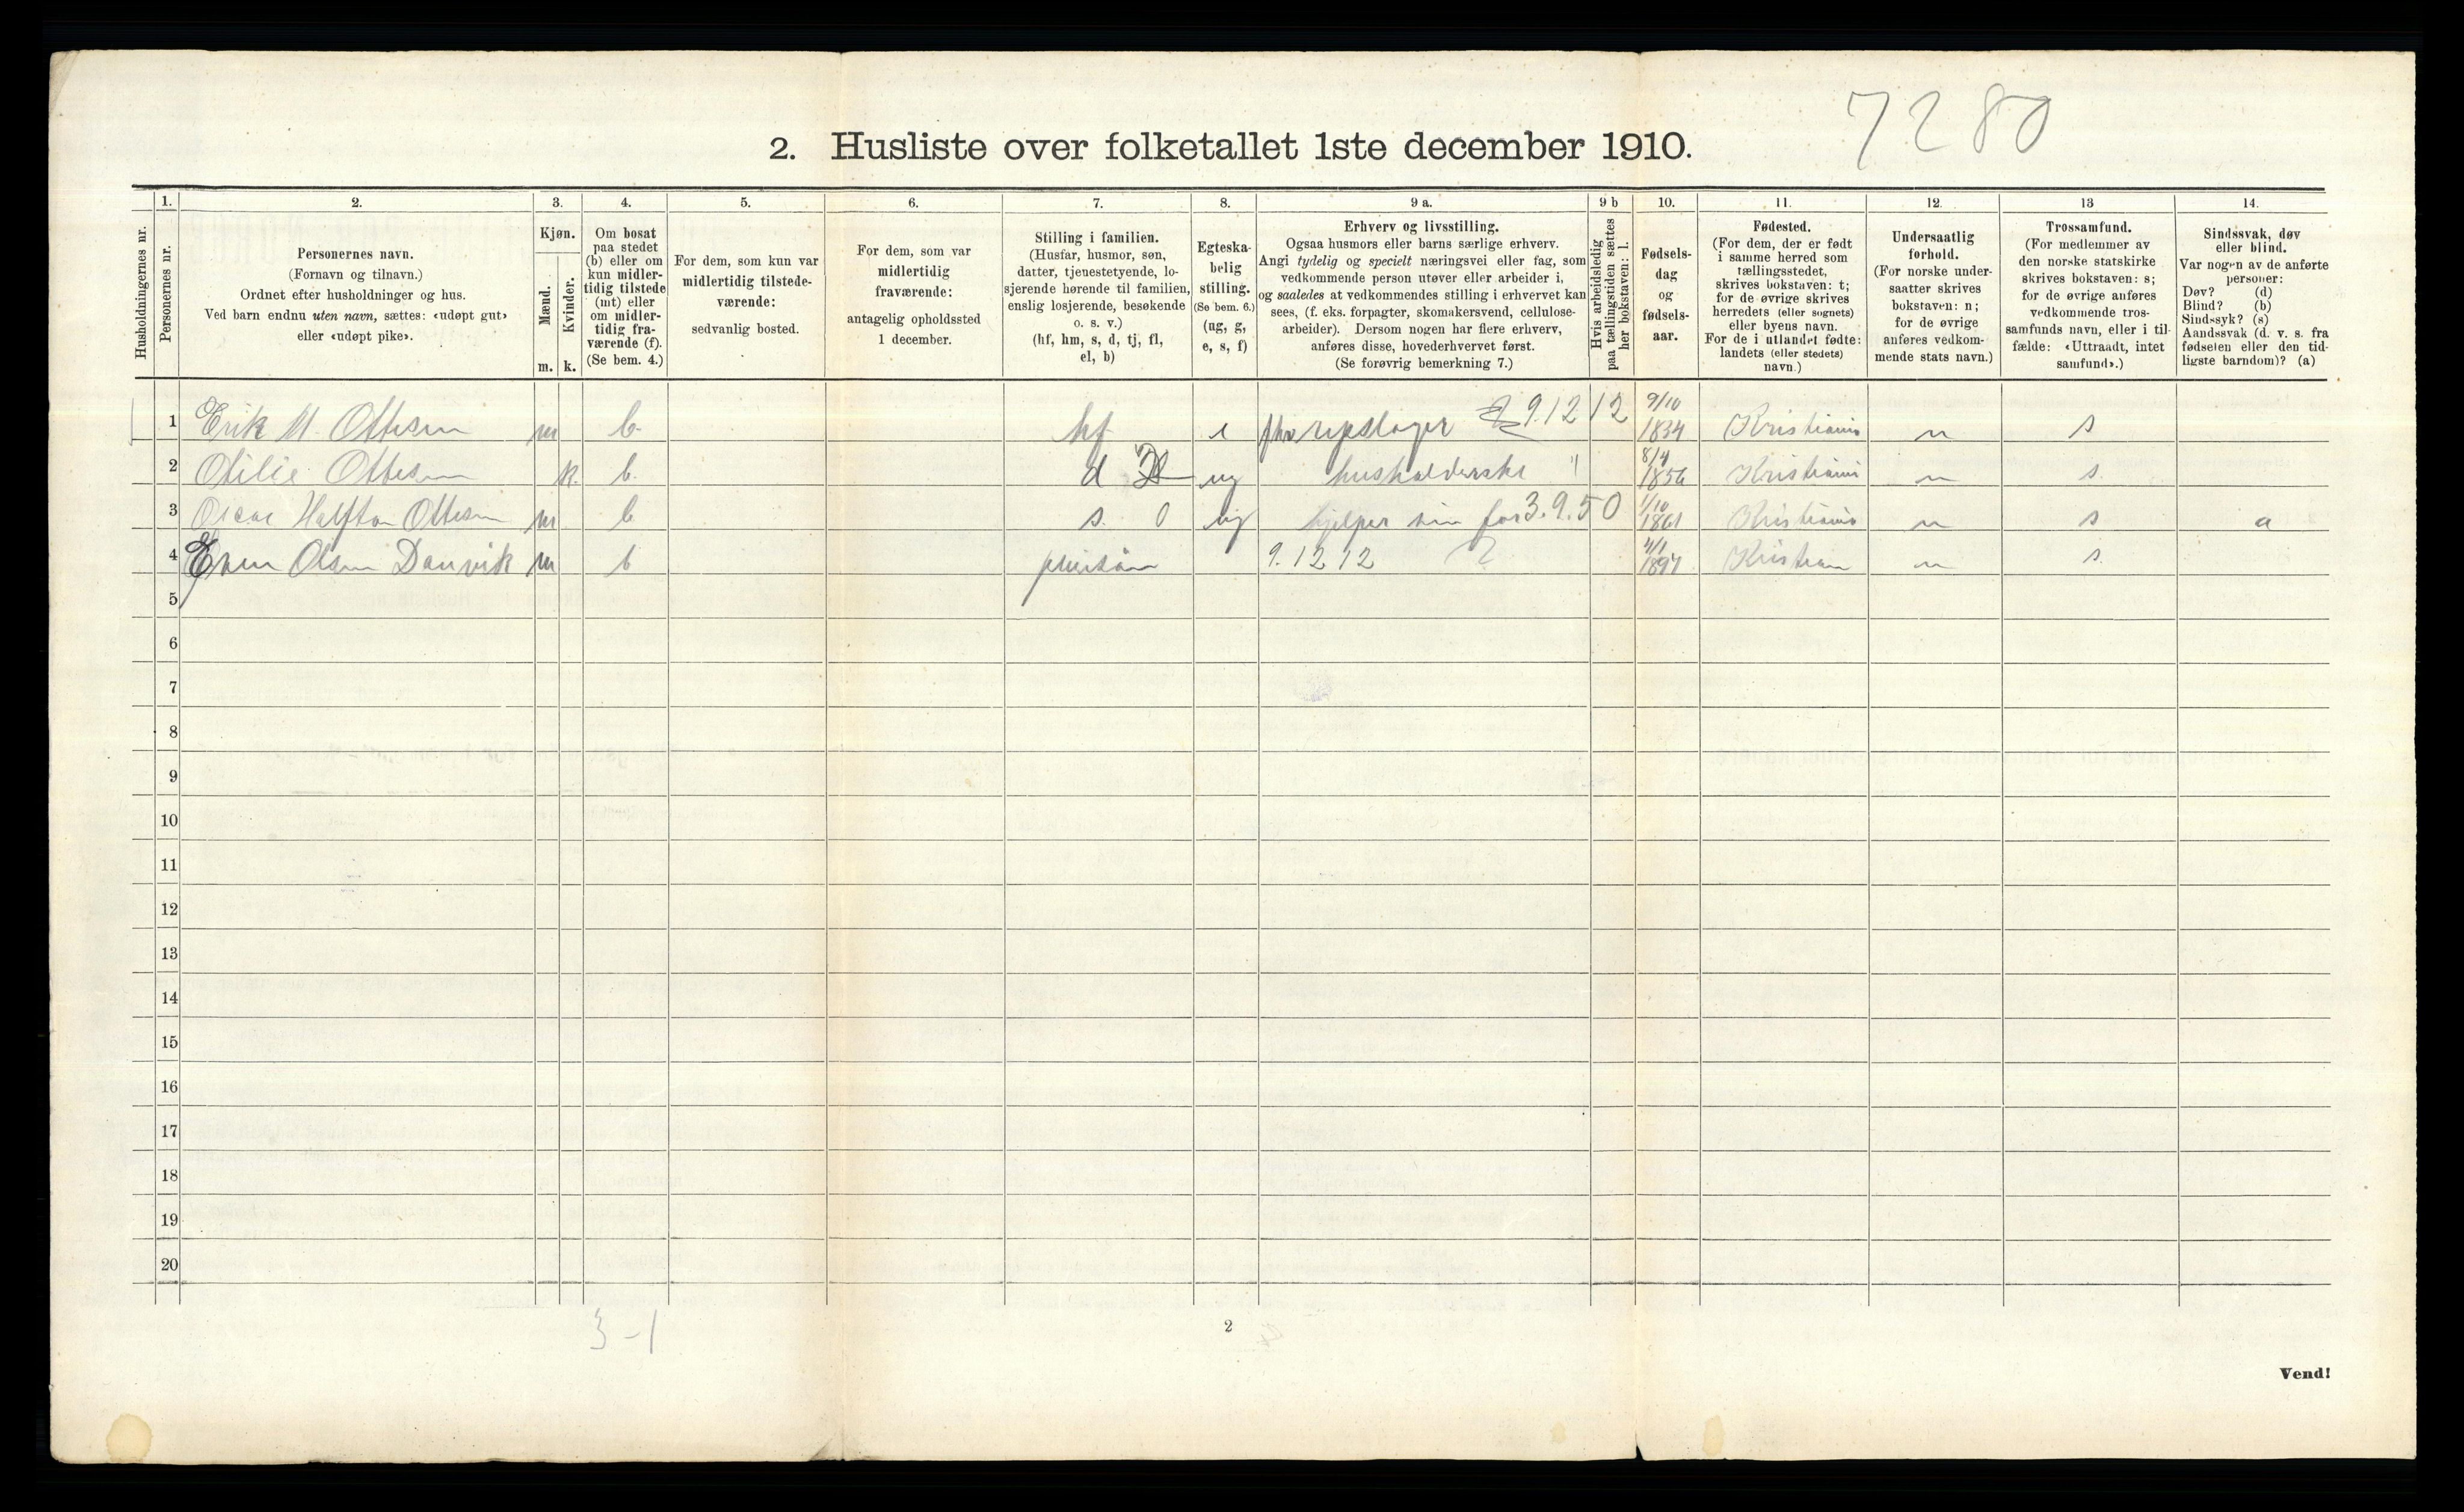 7280
2. Husliste over folketallet 1ste december 1910.
Husholdningernes nr.
1. Personernes nr.
2.
Personernes navn.
(Fornavn og tilnavn.)
Ordnet efter husholdninger og hus.
Ved barn endnu uten navn, sættes: «udøpt gut»
eller «udøpt pike».
3.
Kjøn.
Mænd. Kvinder.
m. k.
4.
Om bosat
paa stedet
(b) eller om
kun midler-
tidig tilstede
(mt) eller
om midler-
tidig fra-
værende (f).
(Se bem. 4.)
5.
For dem, som kun var
midlertidig tilstede-
værende:
sedvanlig bosted.
6.
For dem, som var
midlertidig
fraværende:
antagelig opholdssted
1 december.
7.
Stilling i familien.
(Husfar, husmor, søn,
datter, tjenestetyende, lo-
sjerende hørende til familien,
enslig losjerende, besøkende
o. s. v.)
(hf, hm, s, d, tj, fl,
el, b)
8.
Egteska-
belig
stilling.
(Se bem. 6.)
(ug, g,
e, s, f)
9 a.
Erhverv og livsstilling.
Ogsaa husmors eller barns særlige erhverv.
Angi tydelig og specielt næringsvei eller fag, som
vedkommende person utøver eller arbeider i,
og saaledes at vedkommendes stilling i erhvervet kan
sees, (f. eks. forpagter, skomakersvend, cellulose-
arbeider). Dersom nogen har flere erhverv,
anføres disse, hovederhvervet først.
(Se forøvrig bemerkning 7.)
9 b
Hvis arbeidsledig
paa tællingstiden sættes
her bokstaven: l.
10.
Fødsels-
dag
og
fødsels-
aar.
11.
Fødested.
(For dem, der er født
i samme herred som
tællingsstedet,
skrives bokstaven: t;
for de øvrige skrives
herredets (eller sognets)
eller byens navn.
For de i utlandet fødte:
landets (eller stedets)
navn.)
12.
Undersaatlig
forhold.
(For norske under-
saatter skrives
bokstaven: n;
for de øvrige
anføres vedkom-
mende stats navn.)
13
Trossamfund.
(For medlemmer av
den norske statskirke
skrives bokstaven: s;
for de øvrige anføres
vedkommende tros-
samfunds navn, eller i til-
fælde: «Uttraadt, intet
samfund».)
14.
Sindssvak, døv
eller blind.
Var nogen av de anførte
personer:
Døv? (d)
Blind? (b)
Sindssyk? (s)
Aandssvak (d. v. s. fra
fødselen eller den tid-
ligste barndom)? (a)
1 Erik M. Ottesen m b. hf e fhv repslager 9.12 12 9/10 1834 Kristiania n s
2 Otilie Ottesen k. b. d ug husholderske 8/4 1856 Kristiania n s.
3 Oscar Halfton Ottesen m b s. 0 ug hjelper sin far 3.9.50 1/10 1861 Kristiania n s a
4 Even Olsen Danvik m b 9.12 12 4/1 1897 Kristian n s.
5
6
7
8
9
10
11
12
13
14
15
16
17
18
19
20
3-1
2
Vend!